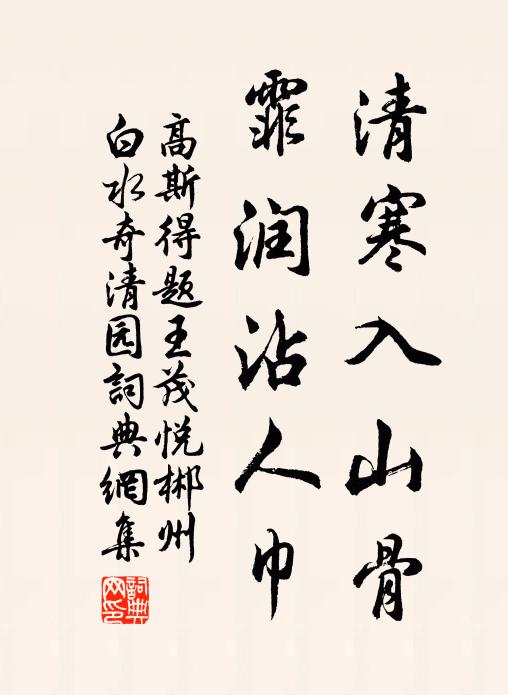 清寒入山骨
霏润沾人巾
高斯得题王茂悦郴州
白水奇清园詞典網集
詞典网印